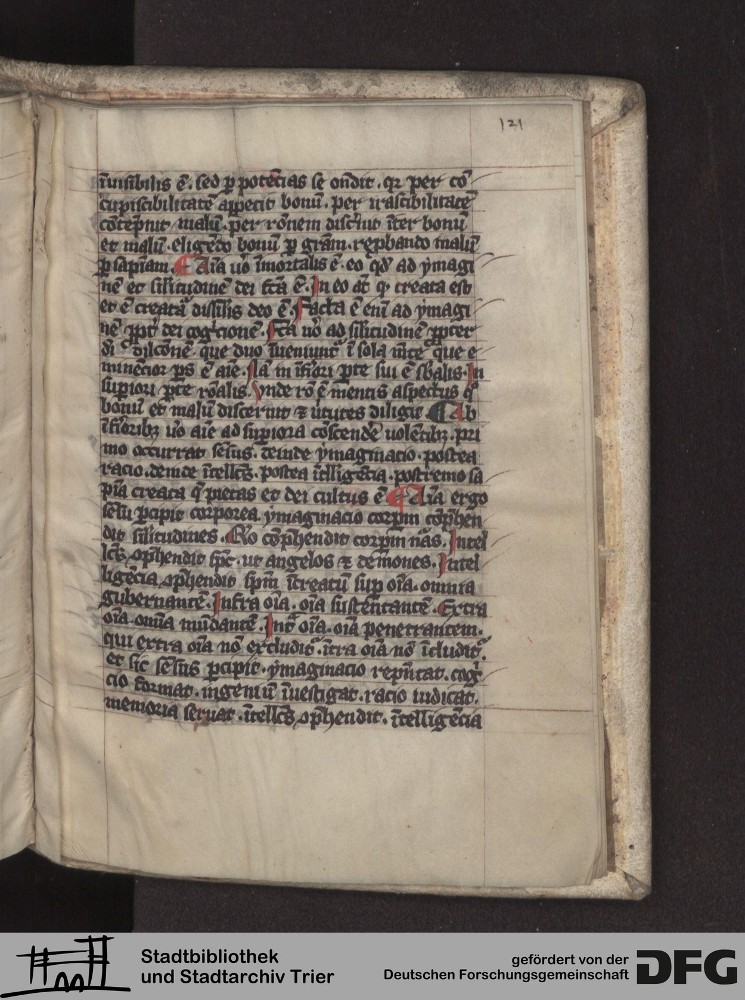 121
īuisibilis ē. sed p̄ potēcias se ondit. qz per cō
cupiscibilitatē appetit bonū. per irascibilitatē
cōtēpnit malū. per rōnem discnit īter bonū
et malū. eligēdo bonū p̄ grām. rephando malū
p̄ sapiam. Aīa uo īmortalis ē. eo qd ad ymagi
nē et silitudinē dei fca ē. In eo at q creata est
et ē creata dissilis deo ē. Facta ē enī ad ymagi
nē ppt dei cognicionē. Fca uo ad silitudinē ppter
di dilconē. que duo īueniunt ī sola mēte que e
minēcior ps ē aīe. Nā in īfiori pte sui ē sbalis. In
supiori pte rōalis. Vnde ro ē mentis aspectus q
bonū et malū discernit & uirtutes diligit. Ab
īfioribz uo aīe ad supiora cōscende uolētibz. pri
mo occurrat sēsus. deinde ymaginacio. postea
racio. deinde ītellcs. postea ītelligēcia. postremo sa
pīa creata q pietas et dei cultus ē. Aīa ergo
sēsu pcipit corporea. ymaginacio corpm cōphen
dit silitudines. Ro cōphendit corpm nās. Intel
lcs cphendit spc. ut angelos & demones. Intel
ligēcia cphendit spm īcreatū sup oīa. omnia
gubernantē. Infra oīa. oīa sustentantē. Extra
oīa omīa mūdantē. Int oīa. oīa penetrantem.
qui extra oīa nō excludit. ītra oīa nō īcludit.
et sic sēsus pcipit. ymaginacio repntat. cogt
cio format. ingeniū īuestigat. racio iudicat.
memoria seruat. ītellcs cphendit. ītelligēcia
Stadtbibliothek
und Stadtarchiv Trier
gefördert von der
Deutschen Forschungsgemeinschaft
DFG